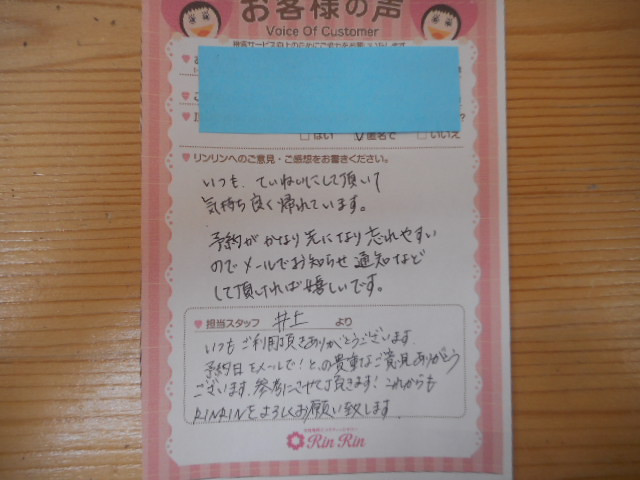 お客様の声
Voice Of Customer
はい ✓匿名で いいえ
リンリンへのご意見・ご感想をお書きください。
いつも、ていねいにして頂いて
気持ち良く帰れています。
予約がかなり先になり忘れやすい
のでメールでお知らせ通知など
して頂ければ嬉しいです。
担当スタッフ 井上 より
いつもご利用頂きありがとうございます。
予約日をメールで!との貴重なご意見ありがとう
ございます。参考にさせて頂きます!これからも
RINRINをよろしくお願い致します。
Rin Rin